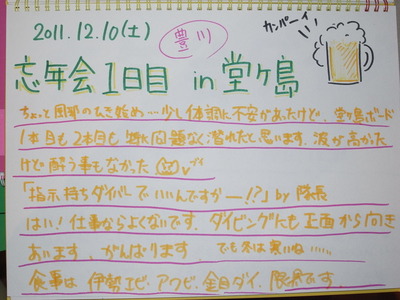 2011.12.10(土)
豊川
カンパーイ
忘年会1日目 in 堂ヶ島
ちょっと風邪のひき始め…少し体調に不安があったけど、堂ヶ島ボード
1本目も2本目も 特に問題なく潜れたと思います。波が高かった
けど酔う事もなかった
「指示待ちダイバーでいいんですかー!?」by 隊長
はい!仕事ならよくないです。ダイビングにも正面から向き
あいます、がんばります。 でも冬は寒いね……
食事は 伊勢エビ・アワビ、金目ダイ、限界です。